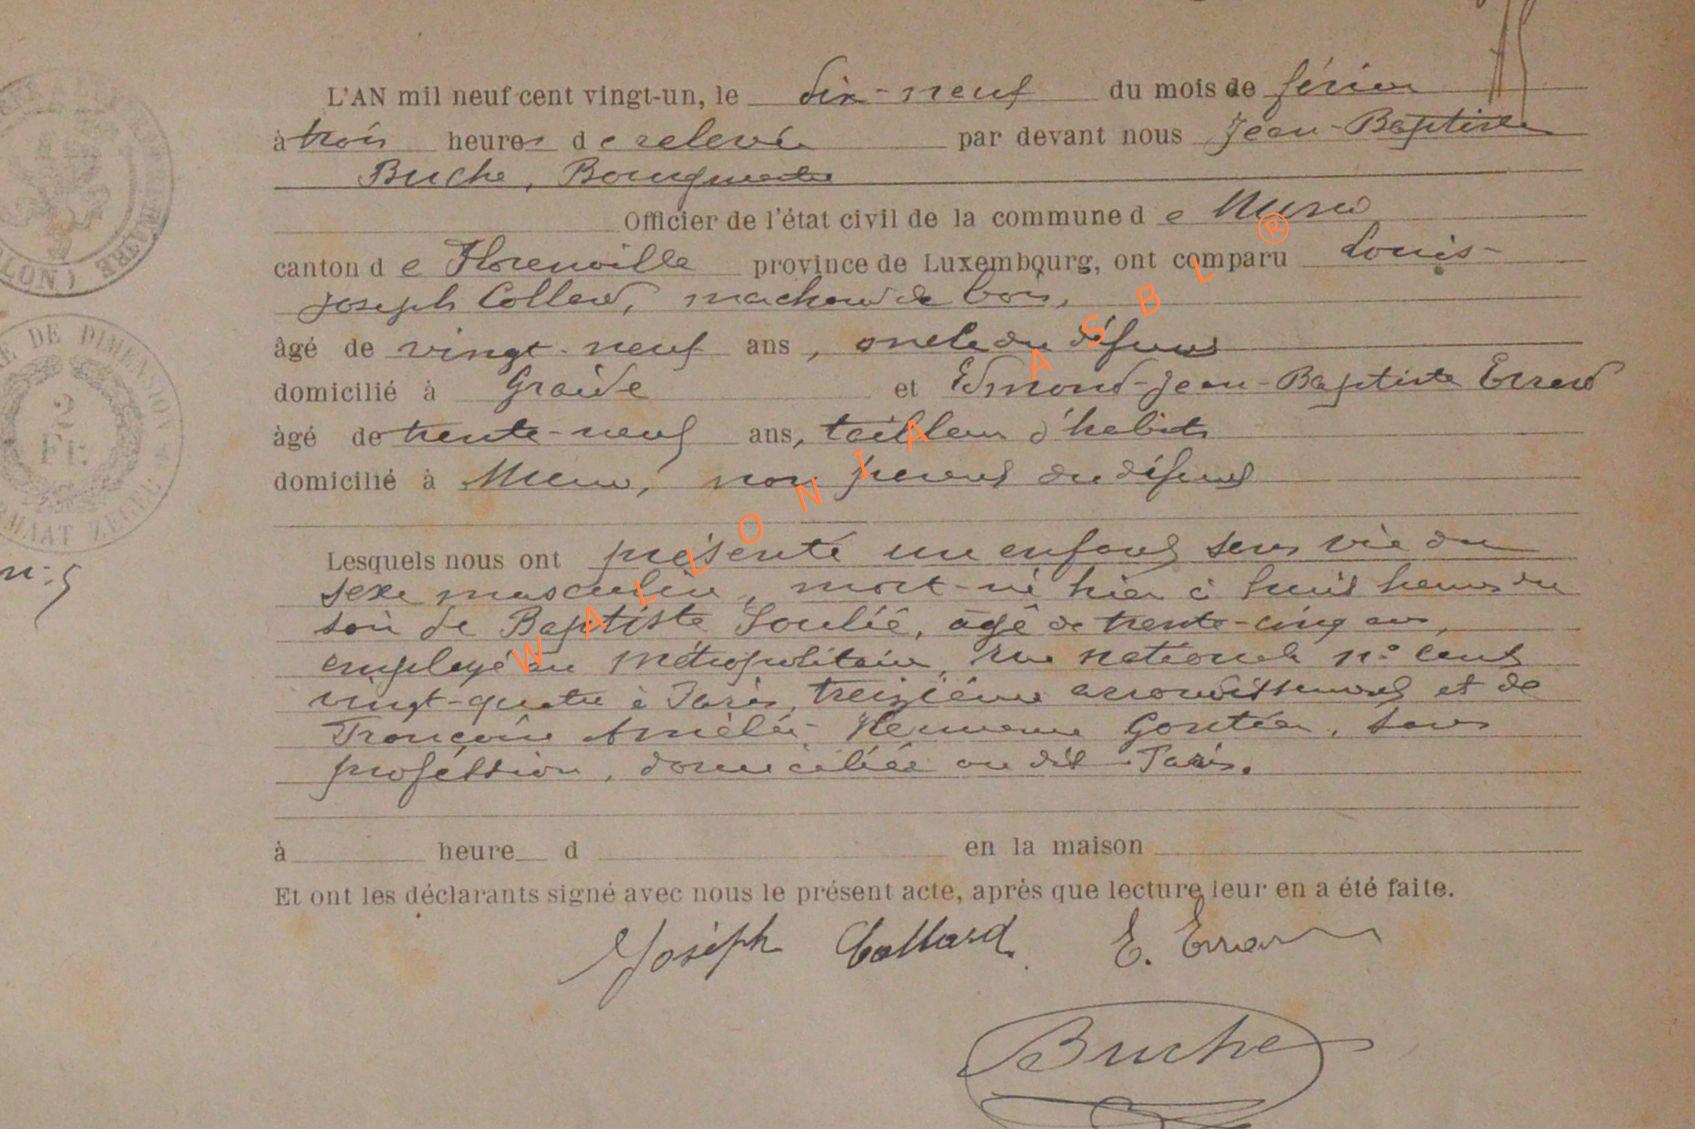 L'AN mil neuf cent vingt-un, le dix-neuf du mois de février
à trois heures de relevée par devant nous Jean-Baptiste
Buche, Bourgmestre
Officier de l'état civil de la commune de
canton de Florenville province de Luxembourg, ont comparu Louis-
Joseph Collard, marchand de bois,
âgé de vingt-neuf ans, oncle du défunt
domicilié à Graide et Edmond-Jean-Baptiste Errard
âgé de trente-neuf ans, tailleur d'habits
domicilié à non parent du défunt
Lesquels nous ont présenté un enfant sans vie du
sexe masculin, mort-né hier à huit heures du
soir de Baptiste Soulié, âgé de trente-cinq ans,
employé au Métropolitain, rue nationale n° cent
vingt-quatre à Paris, treizième arrondissement et de
Françoise Amélie Gontier, sans
profession, domiciliée au dit Paris.
à heure d en la maison
Et ont les déclarants signé avec nous le présent acte, après que lecture leur en a été faite.
Joséph Collard. E. Errard
Buche
n: 5
E DE DIMENSION
2
FR
ORMAAT ZEGEL
WALLONIA ASBL ®